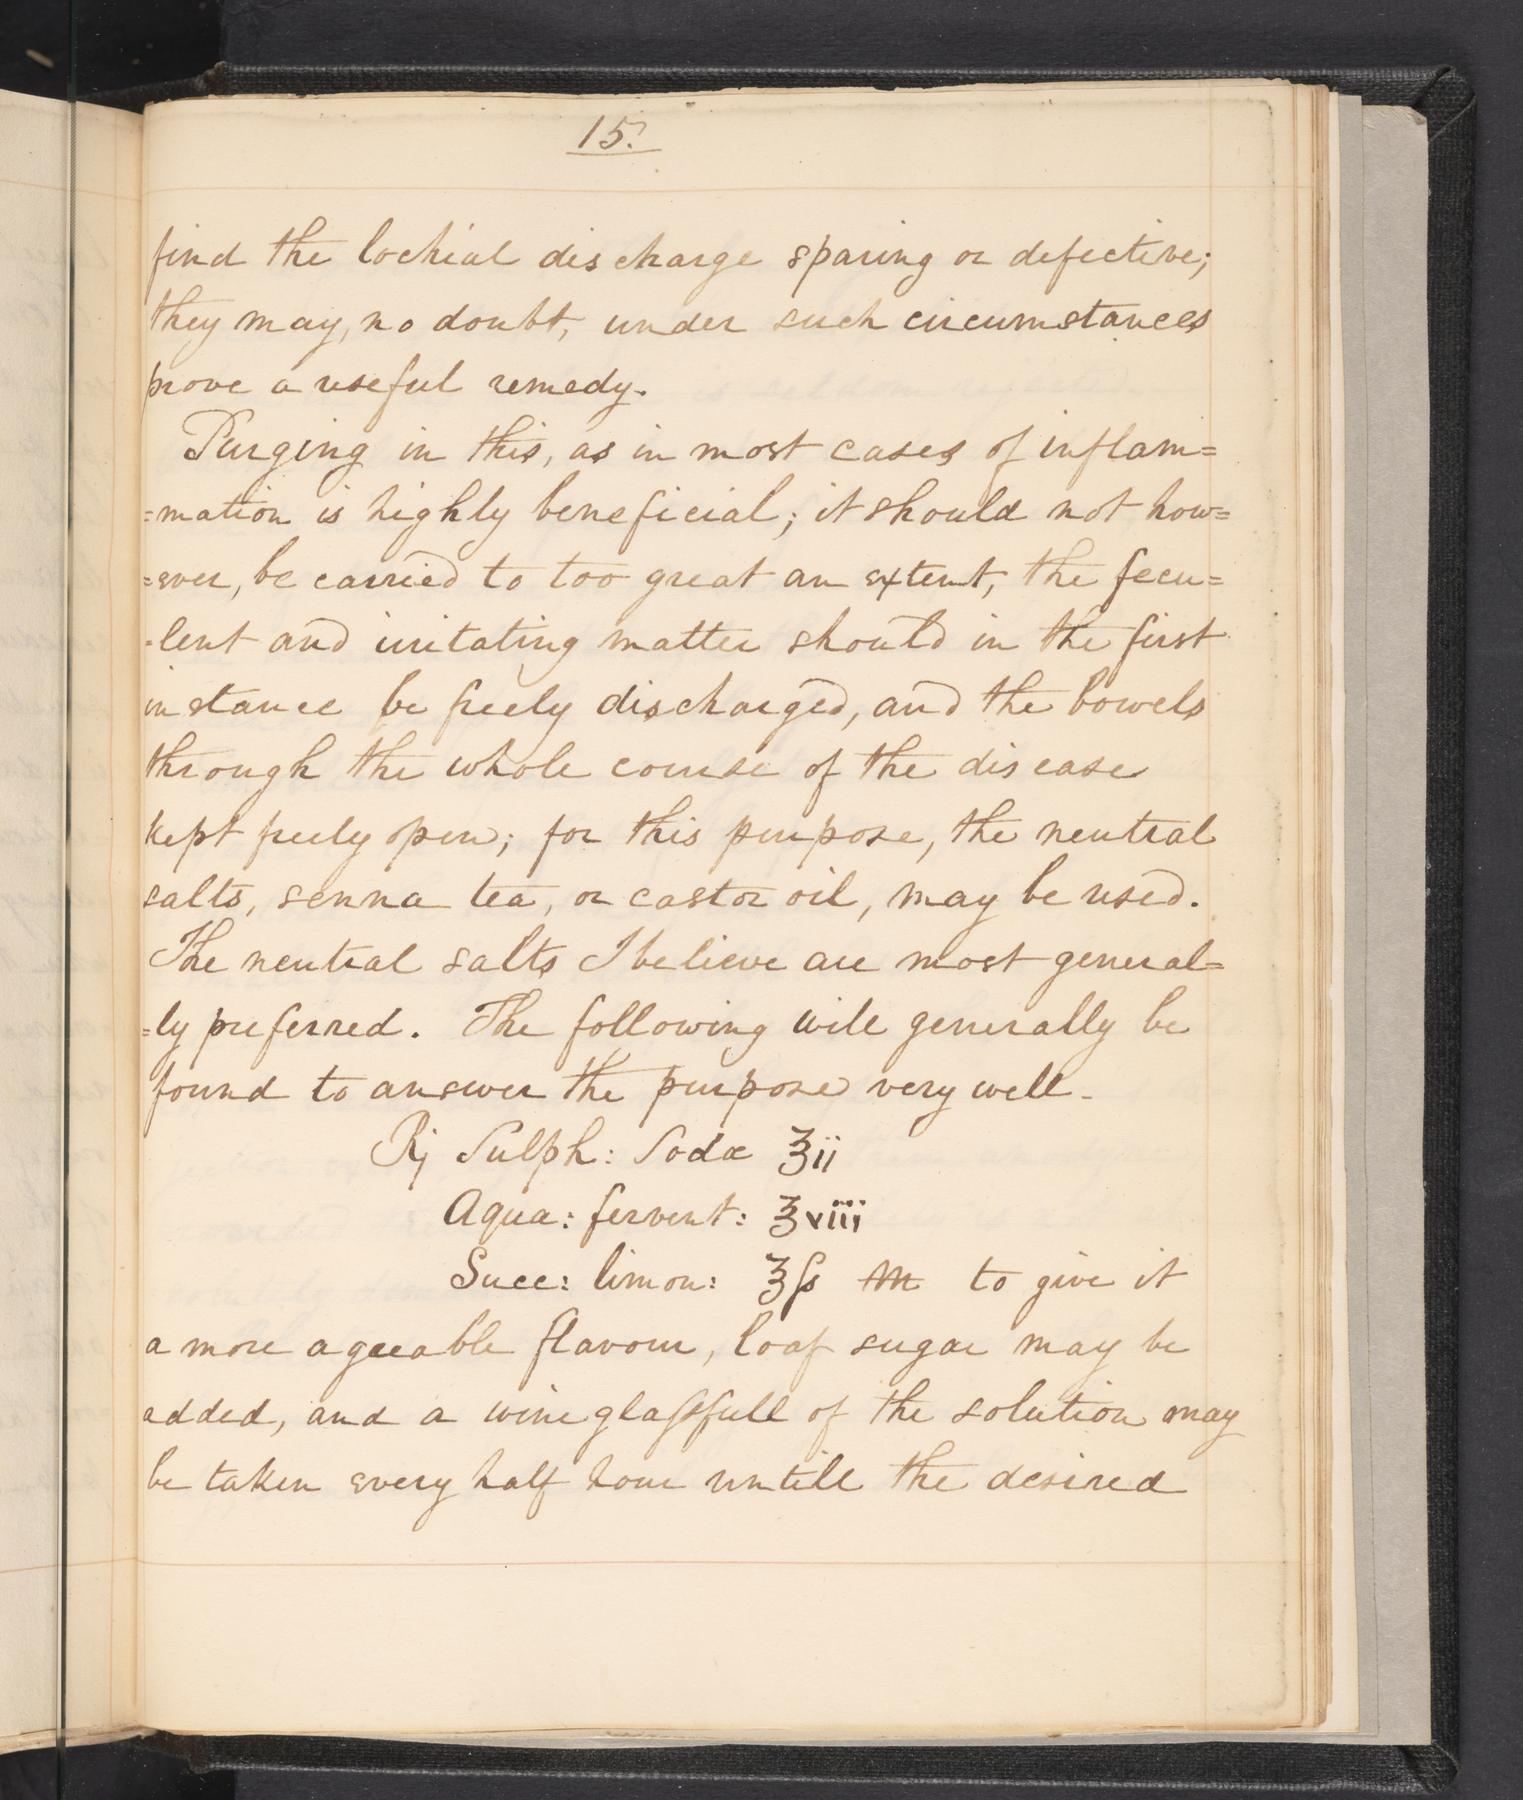 15.
find the lochial discharge sparing or defective;
they may, no doubt, under such circumstances
prove a useful remedy.
Purging in this, as in most cases of inflam=
=mation is highly beneficial; it should not how=
=ever, be carried to too great an extent, the fecu=
=lent and irritating matter should in the first
instance be freely discharged, and the bowels
through the whole course of the disease
kept freely open; for this purpose, the neutral
salts, senna tea, or castor oil, may be used.
The neutral salts I believe are most general=
=ly preferred. The following will generally be
found to answer the purpose very well.
℞ Sulph: Sodæ ℥ii
Aqua: fervent: ℥viii
Succ: limon: ℥ſs M to give it
a more agreeable flavour, loaf sugar may be
added, and a wineglaſsfull of the solution may
be taken every half hour untill the desired